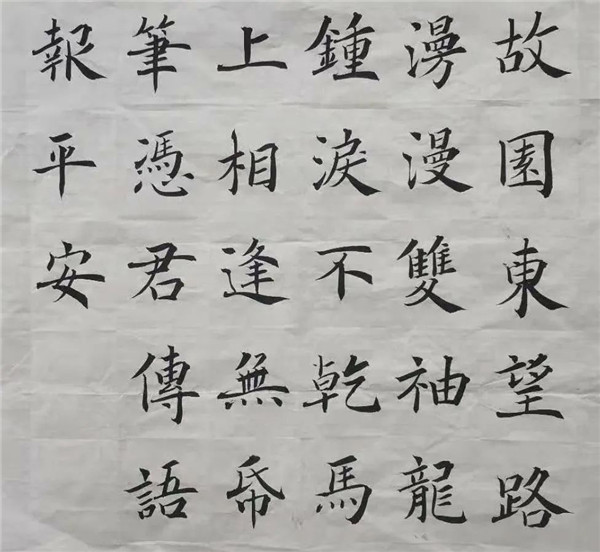 故園東望路
漫漫雙袖龍
鍾淚不乾馬
上相逢無帋
筆憑君傳語
報平安